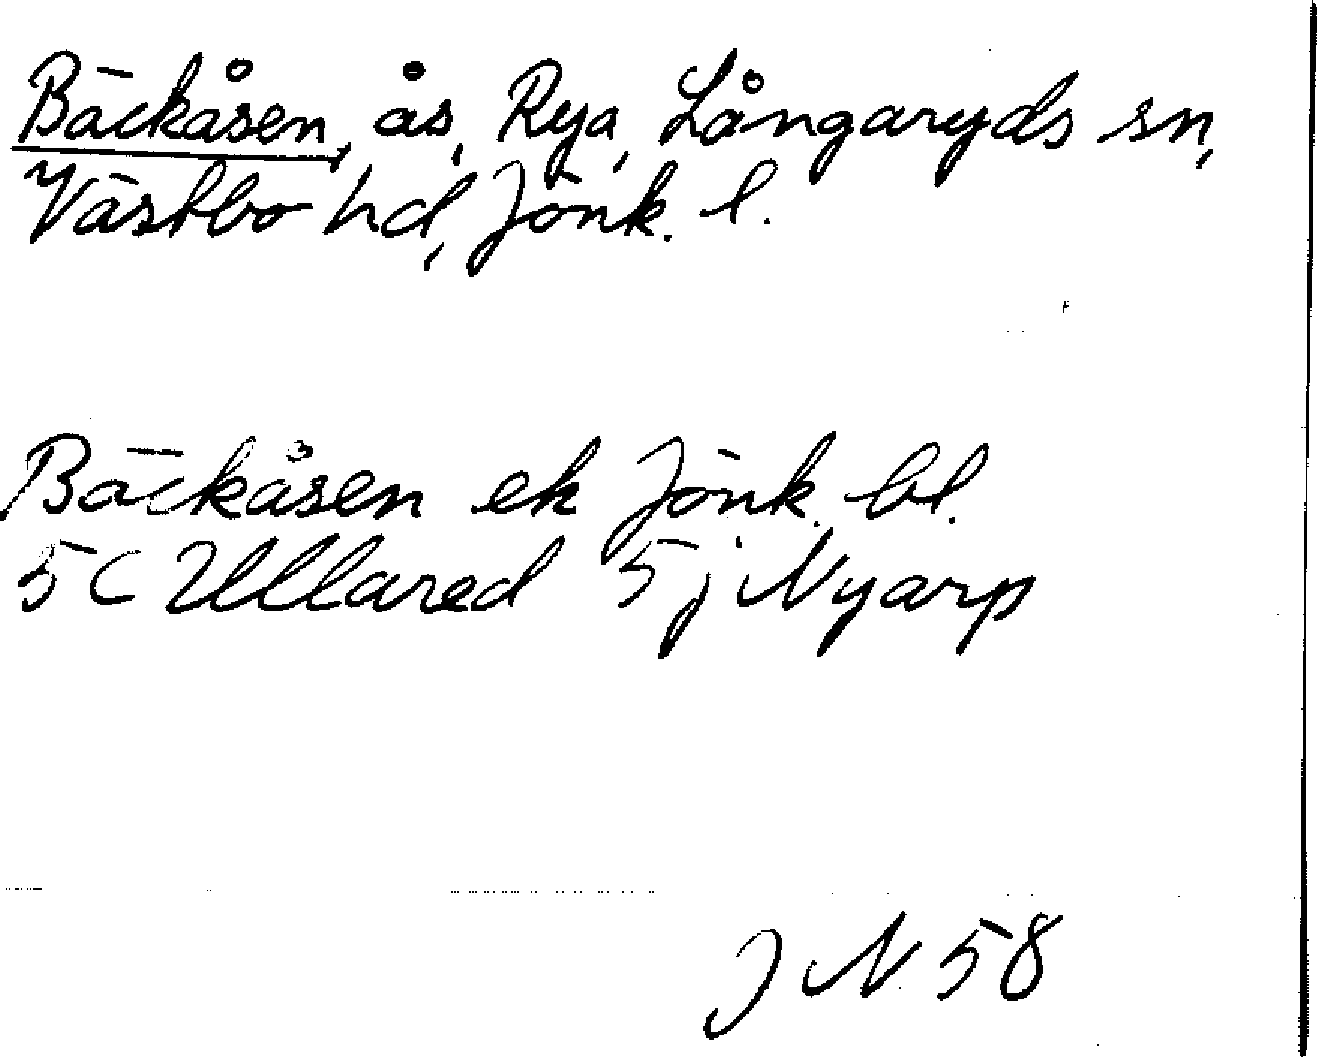 Bäckåsen, ås, Rya, Långaryds sn,
Västbo hd, Jönk. l.
Bäckåsen ek Jönk. bl.
5C Ullared 5j Nyarp
J N. 58